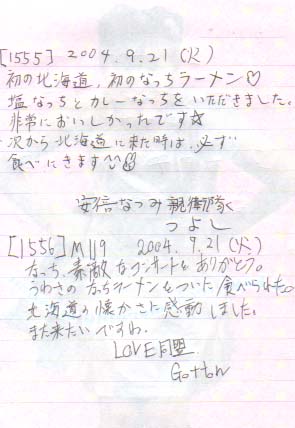 [1555] 2004.9.21(火)
初の北海道、初のなっちラーメン♡
塩なっちとカレーなっちをいただきました。
非常においしかったです☆
次から北海道に来た時は、必ず
食べにきます^^
安倍なつみ親衛隊
つよし
[1556] M119 2004.9.21(火)
なっち、素敵なコンサートをありがとう。
うわさのなっちラーメンをついに食べられた。
北海道の懐かさに感動しました。
また来たいですね。
LOVE同盟